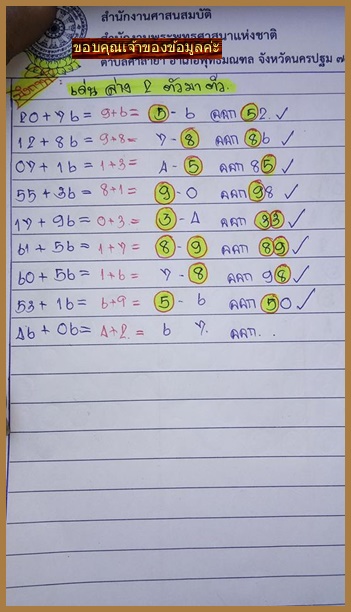 สำนักงานศาสนสมบัติ
สำนักงานพระพุทธศาสนาแห่งชาติ
ขอบคุณเจ้าของข้อมูลค่ะ
ตำบลศาลายา อำเภอพุทธมณฑล จังหวัดนครปฐม ๗
เด่น ล่าง 2 ตัวมา ตัว.
20 + 76 = 9+6 = 5 - 6 ออก 52. ✓
12 + 86 = 9+8 = 7 - 8 ออก 86 ✓
07 + 16 = 1+3 = 4 - 5 ออก 85 ✓
55 + 36 = 8+1 = 9 - 0 ออก 98 ✓
17 + 96 = 0+3 = 3 - 4 ออก 33 ✓
61 + 56 = 1+7 = 8 - 9 ออก 89 ✓
60 + 56 = 1+6 = 7 - 8 ออก 98 ✓
53 + 16 = 6+9 = 5 - 6 ออก 50 ✓
46 + 06 = 4+2 = 6 7. ออก. .